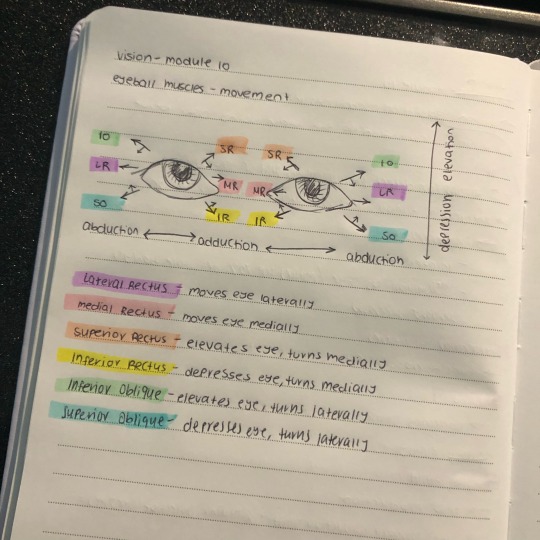 vision - module 10
eyeball muscles - movement
IO SR SR IO
LR MR MR LR
SO IR IR SO
abduction adduction abduction
depression elevation
Lateral Rectus - moves eye laterally
medial Rectus - moves eye medially
Superior Rectus - elevates eye, turns medially
Inferior Rectus - depresses eye, turns medially
Inferior Oblique - elevates eye, turns laterally
Superior Oblique - depresses eye, turns laterally